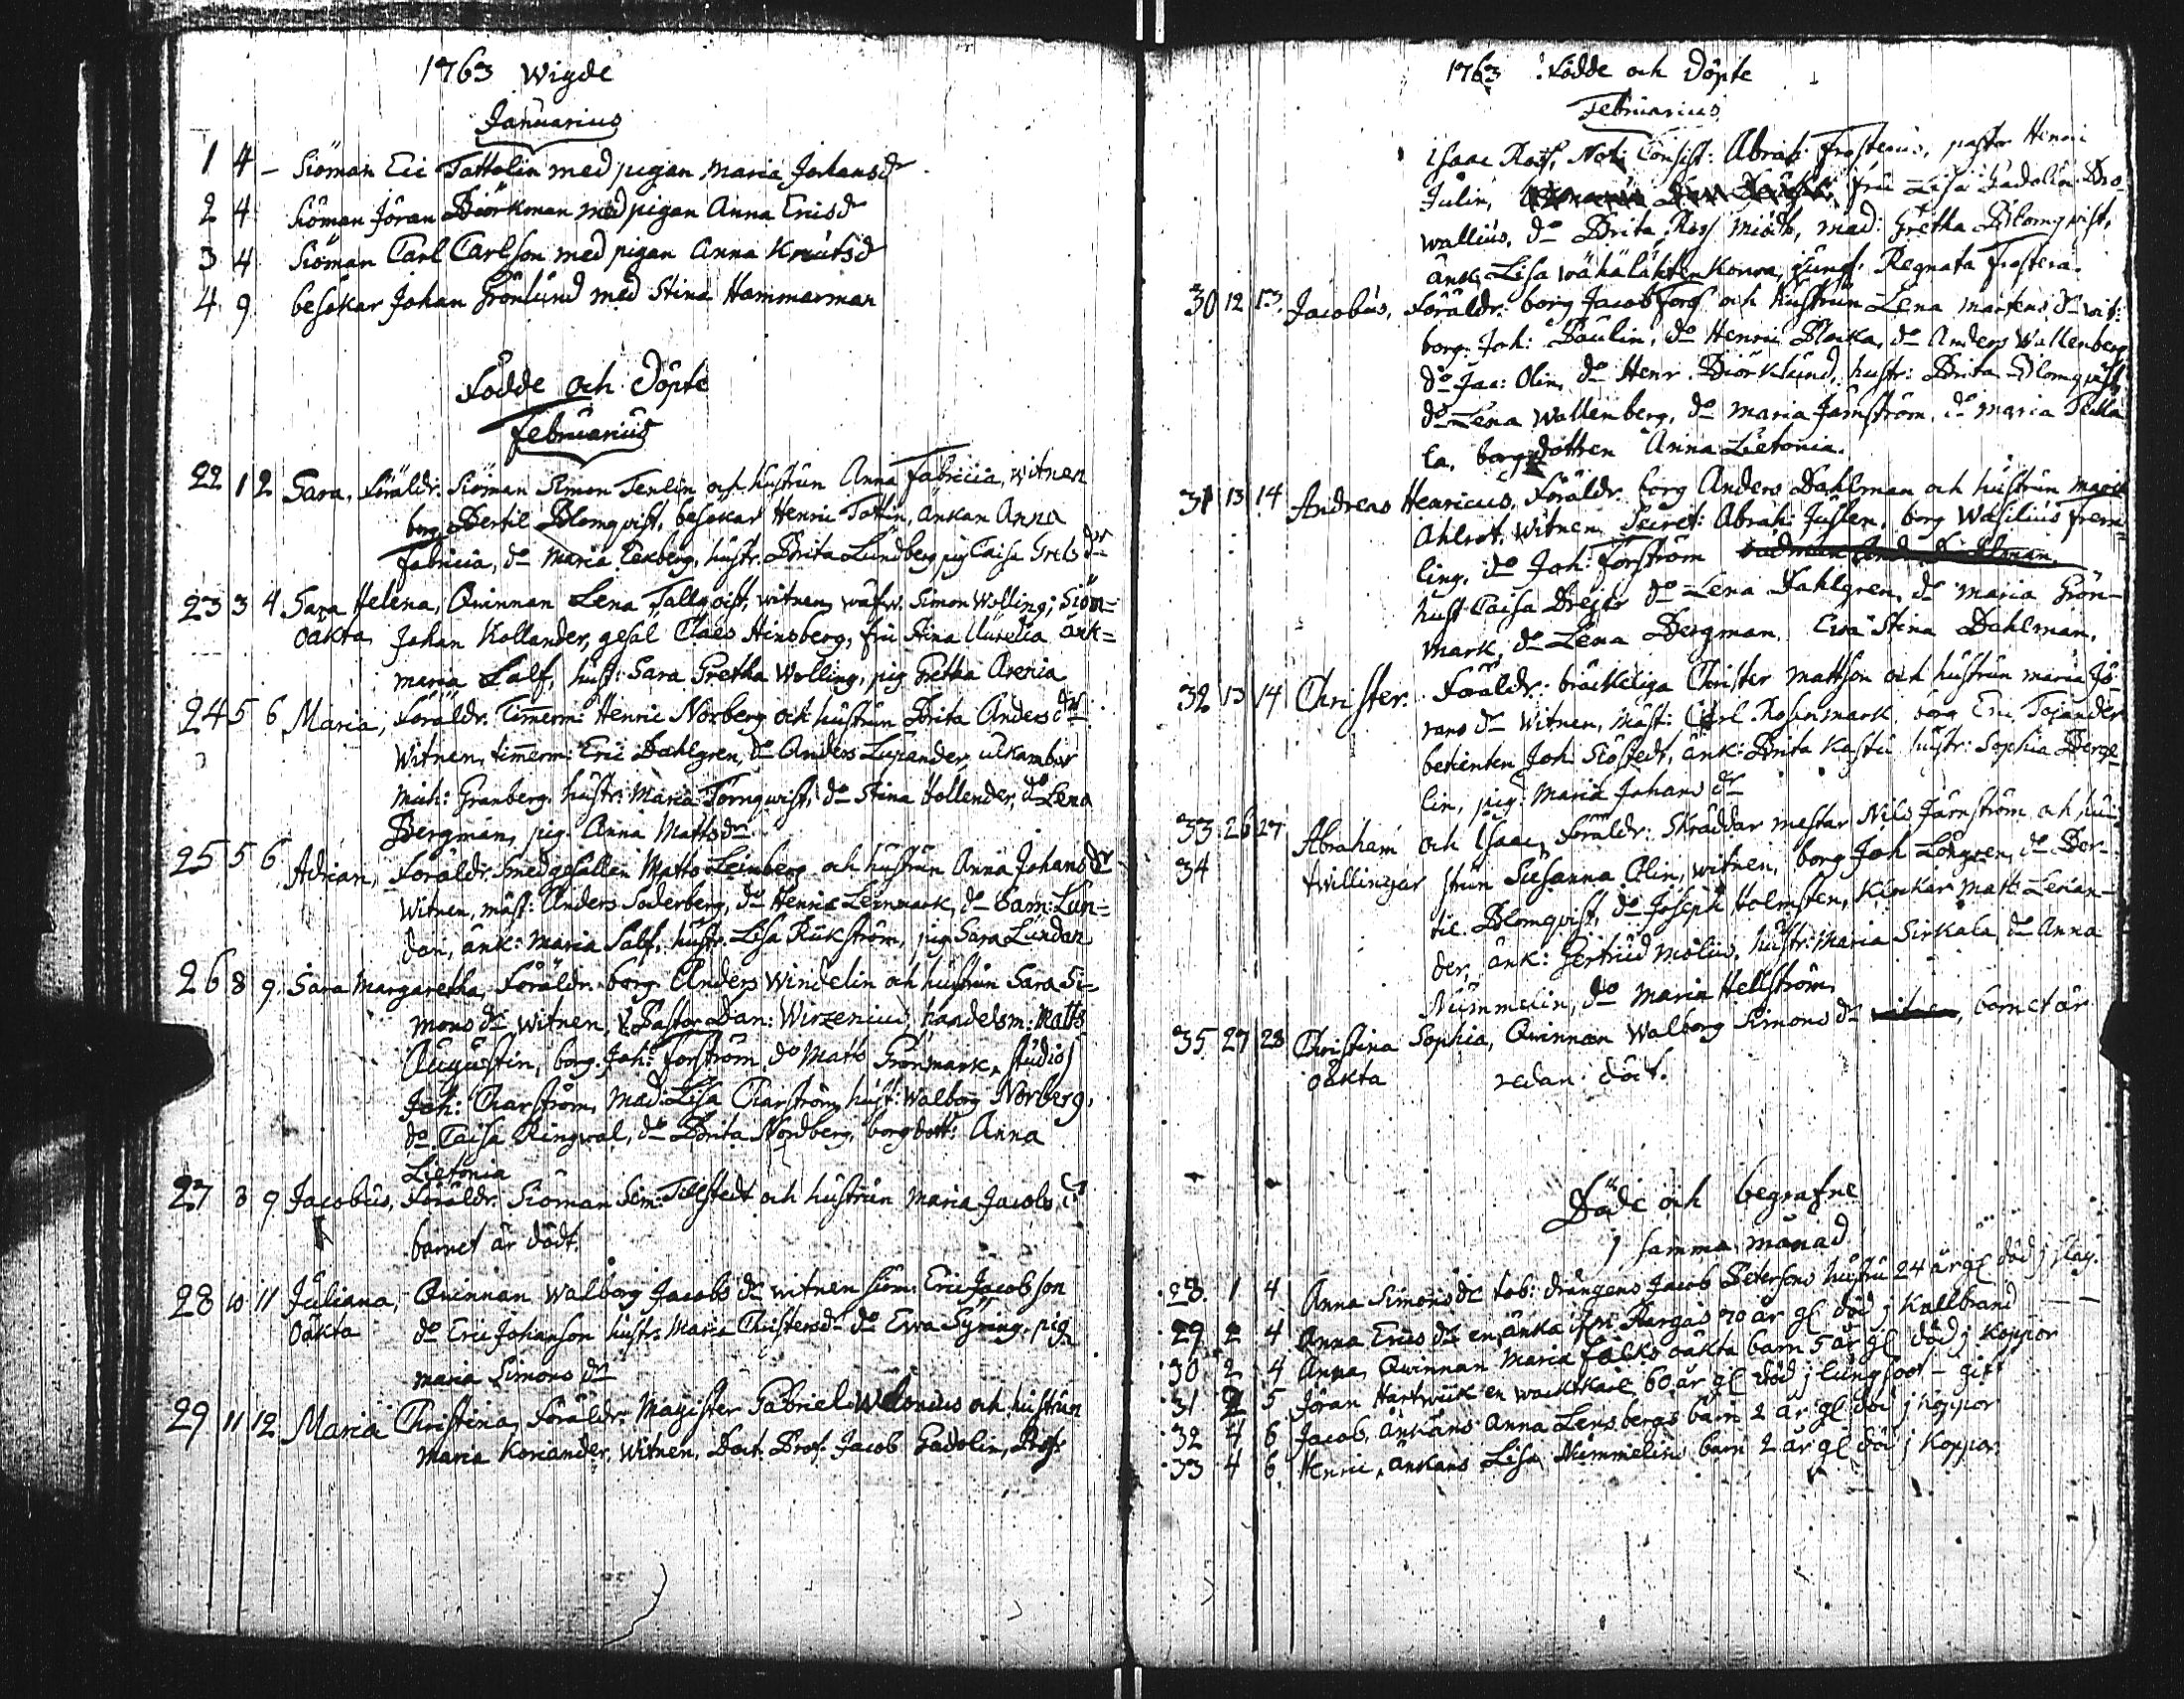 1763 Wigde
Januarius
1 4 – Siöman Eric Tattolin med pigan Maria Johansdr
2 4 Siöman Jöran Biörkman med pigan Anna Ericsdr
3 4 Siöman Carl Carlson med pigan Anna Knutsdr
4 9 besökar Johan Grönlund med Stina Hammarman
Födde och Döpte
Februarius
22 1 2 Sara, Föräldr: Siöman Simon Tenlin och hustrun Anna Fabricia, witnen
borg Bertil Blomqvist, besökar Henric Tottin, änkan Anna
Fabricia, do Maria Ekberg, hustr. Brita Lundberg pig Caisa Grelsdr
23 3 4 Sara Helena, Qvinnan Lena Tallqvist, witnen, wäfw. Simon Wolling, Siöm:
Oäkta Johan Kollander, gesäl Claes Hinsberg, fru Stina Aurelia änk=
Maria Salf, hust: Sara Gretha Wolling, pig Gretha Arenia
24 5 6 Maria, Föräldr. Timerm: Henric Norberg och hustrun Brita Andersdr
Witnen, timerm: Eric Dahlgren, do Anders Lupander, ulkambar
Mich: Granberg, hustr: Maria Törnqwist, do Stina Hollender, do Lena
Bergman, pig. Anna Mattsdr
25 5 6 Adrian, Föräldr. Smedgesällen Matts Leinberg och hustrun Anna Johansdr
Witnen, mäst: Anders Söderberg, do Henric Leinmark, do Sam: Lun=
dan, änk: Maria Salf, hustr. Lisa Rükström, pig Sara Lundan
26 8 9 Sara Margaretha, Föräldr. borg Anders Windelin och hustrun Sara Si=
monsdr witnen, V. Pastor Dan: Wirzenius, handelsm: Matts
Augustin, borg. Joh: Forström, do Matts Grönmark, studios
Joh: Charström, Mad: Lisa Charström, hust: Walborg Norberg,
do Caisa Ringwal, do Brita Nordberg, borgdott: Anna
Lietonia
27 8 9 Jacobus, Föräldr. Siöman Sim: Tillstedt och hustrun Maria Jacobsdr
barnet är dödt.
28 10 11 Juliana, Qvinnan Walborg Jacobsdr witnen Siöm: Eric Jacobson
Oäkta do Eric Johanson hustr. Maria Christersdr do Ewa Syring, pig
Maria Simonsdr
29 11 12 Maria Christina, Föräldr. Magister Gabriel Welonius och hustrun
Maria Koriander, Witnen, Doct. Prof. Jacob Gadolin, Prof
1763 Födde och Döpte
Februarius
Isaac Ross, Not: Consist: Abrah: Frosterus, pastor Henric
Julin, fru Lisa Gadolin Bro-
wallius, do Brita Ross Miödh, mad: Gretha Blomqvist,
änk Lisa Wähäläkten Konva, jungf. Regnata Frostera.
30 12 13 Jacobus, Föräldr. borg Jacob Forss och hustrun Lena Mårtensdr wit:
borg: Joh: Paulin, do Henric Blocka, do Anders Wallenberg
do Jac: Olin, do Henr. Biörklund, hustr: Brita Blomqvist
do Lena Wallenberg, do Maria Järnström, do Maria
la, borgdottren Anna Lietonia.
31 13 14 Andreas Henricus, Föräldr. borg Anders Dahlman och hustrun Maria
Ahlrot, Witnen, Secret: Abrah: Juslen, borg Wasilius Frem-
ling, do Joh: Forström
hust Caisa Brejts do Lena Dahlgren, do Maria Grön-
mark, do Lena Bergman. Ewa Stina Dahlman.
32 13 14 Christer. Föräldr: bräckeliga Christer Mattson och hustrun Maria Jö
ransdr Witnen, mäst: Carl Rosinmark borg Eric Tojander
betienten Joh: Siöstedt, änk: Brita Kastu hustr: Sophia Berge
lin, pig: Maria Johansdr
33 26 27 Abraham och Isaac, Föräldr: Skräddar mestar Nils Järnström och hu-
34 twillingar strun Susanna Olin, witnen, borg Joh Löngren, do Ber-
til Blomqvist, do Joseph Holmsten, Klockar Matt: Lenan-
der, änk: Gertrud Molin, hustr: Maria Sirkala do Anna
Nummelin, do Maria Hellström,
35 27 28 Christina Sophia, Qvinnan Walborg Simonsdr barnet är
oäkta redan dödt.
Döde och begrafne
j samma månad
28 1 4 Anna Simonsdr tob: drängens Jacob Petersons hustru 24 år gl död j slag.
29 2 4 Anna Ericsdr en änka ifrån Pargas 70 år gl död j Kallbrand
30 2 4 Anna, Qvinnan Maria Falks oäkta barn 5 år gl död j Koppor
31 2 5 Jöran Hartwik en wacktkarl 60 år gl död j lungsoot – gift
32 4 6 Jacob, änkans Anna Lensbergs barn 2 år gl död j Koppor
33 4 6 Henric, änkans Lisa Nummelins barn 2 år gl död j Koppor